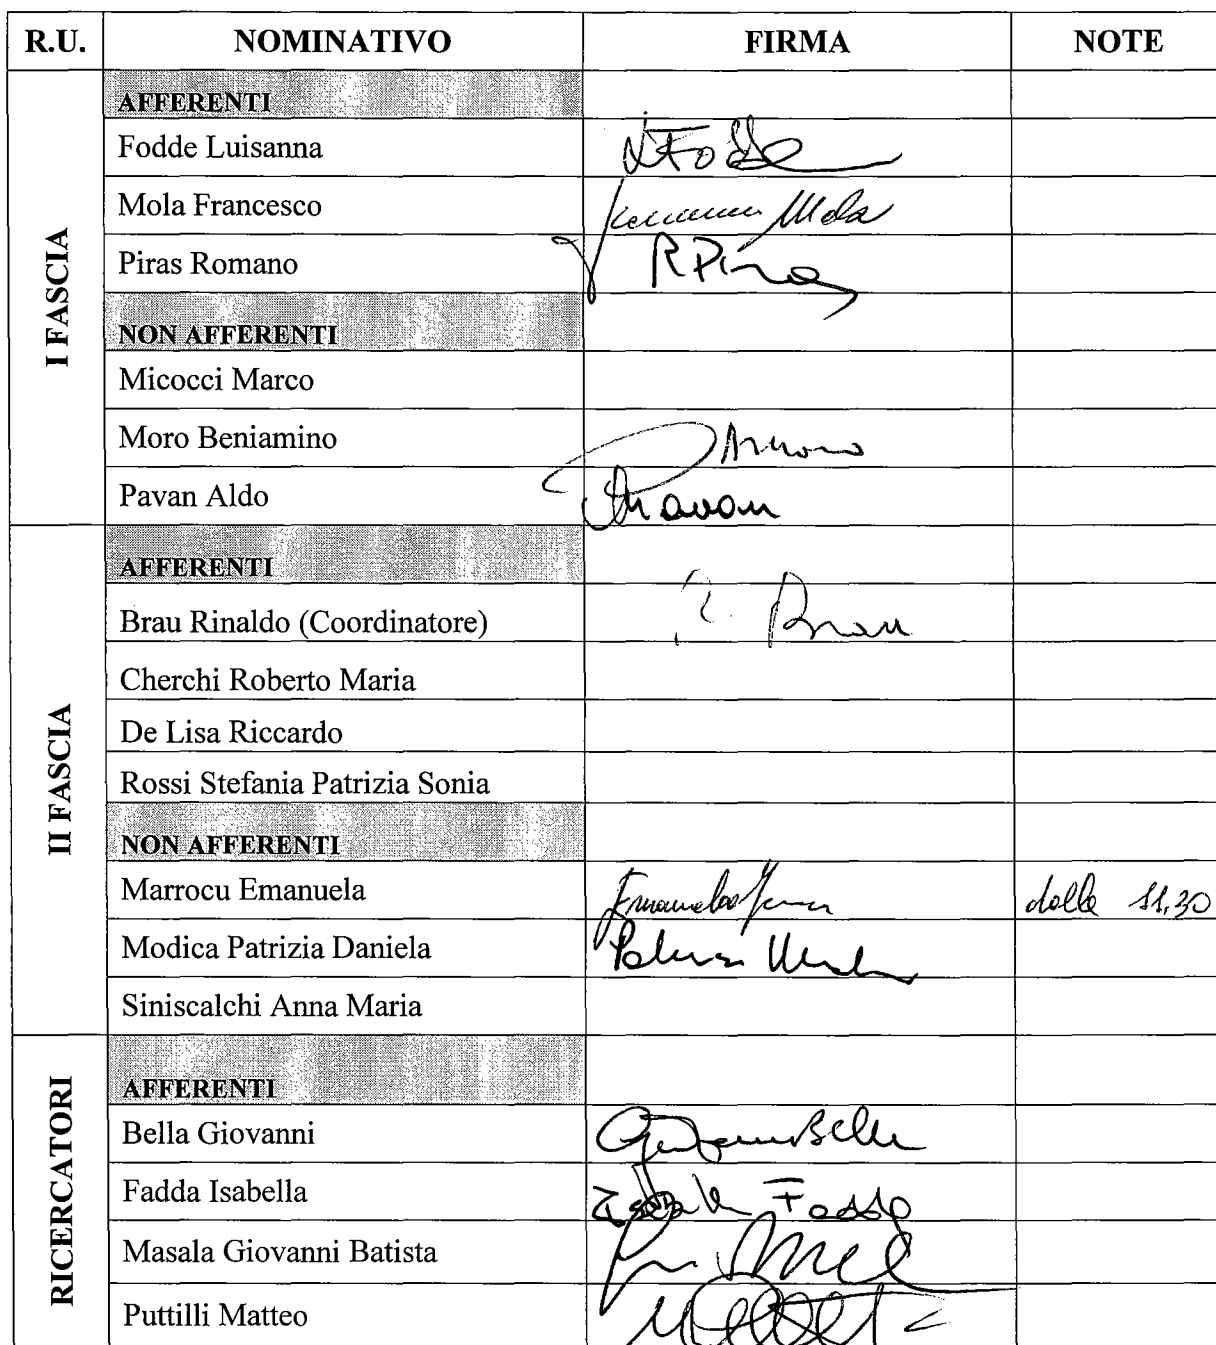 R.U. NOMINATIVO FIRMA NOTE
I FASCIA
AFFERENTI
Fodde Luisanna LFodde
Mola Francesco Mola
Piras Romano R Piras
NON AFFERENTI
Micocci Marco
Moro Beniamino
Pavan Aldo Pavan
II FASCIA
AFFERENTI
Brau Rinaldo (Coordinatore) R. Brau
Cherchi Roberto Maria
De Lisa Riccardo
Rossi Stefania Patrizia Sonia
NON AFFERENTI
Marrocu Emanuela Emanuela dalle 11,30
Modica Patrizia Daniela
Siniscalchi Anna Maria
RICERCATORI
AFFERENTI
Bella Giovanni Bella
Fadda Isabella Isabella Fadda
Masala Giovanni Batista
Puttilli Matteo